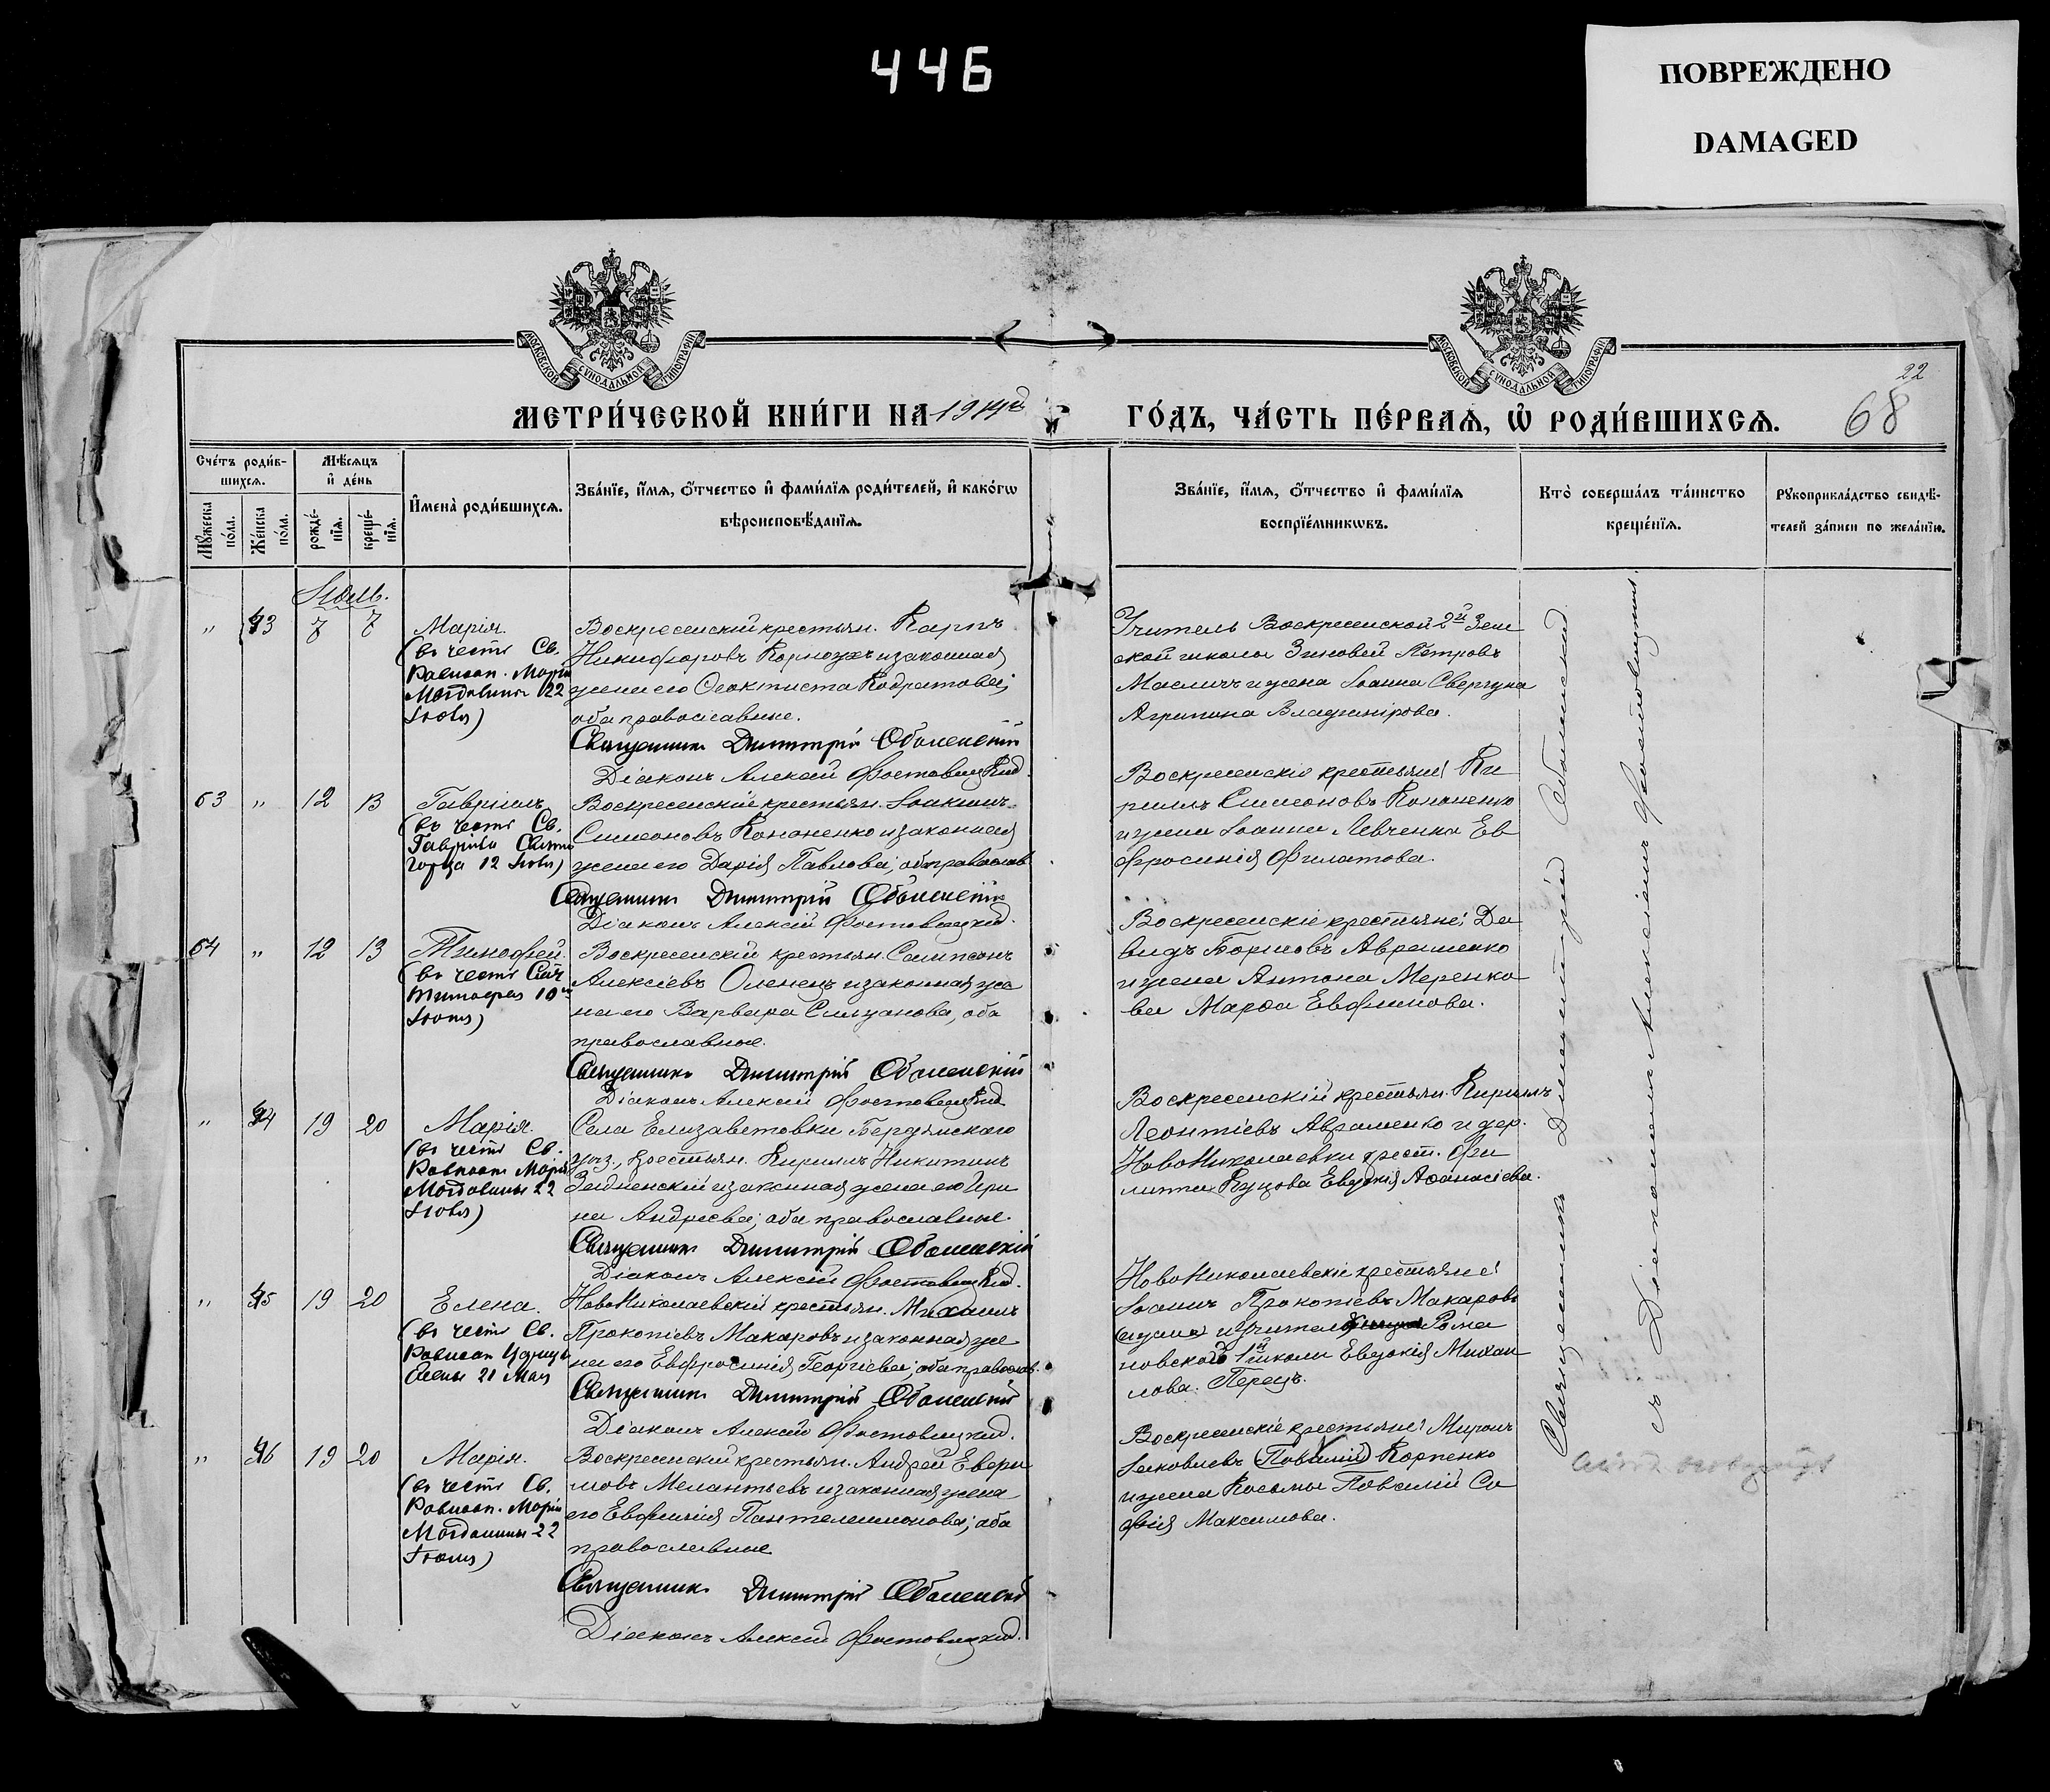 446
ПОВРЕЖДЕНО
DAMAGED
МОСКОВСКОЙ СѴНОДАЛЬНОЙ ТИПОГРАФІИ
МОСКОВСКОЙ СѴНОДАЛЬНОЙ ТИПОГРАФІИ
22
68
МЕТРИ́ЧЕСКОЙ КНИ́ГИ НА 1914й
ГО́ДЪ, ЧА́СТЬ ПЕ́РВАѦ, Ѡ҆ РОДИ́ВШИХСѦ.
Сче́тъ роди́в-
шихсѧ.
Мѣ́сѧцъ
и҆ де́нь
Мꙋ́жеска
по́ла.
Же́нска
по́ла.
рожде́-
нїѧ.
креще́-
нїѧ.
И҆мена̀ роди́вшихсѧ.
Зва́нїе, и҆́мѧ, ѻ҆́тчество и҆ фами́лїѧ роди́телей, и҆ како́гѡ
вѣроисповѣ́данїѧ.
Зва́нїе, и҆́мѧ, ѻ҆́тчество и҆ фами́лїѧ
воспрїе́мникѡвъ.
Кто̀ соверша́лъ та́инство
креще́нїѧ.
Рꙋкоприкла́дство свидѣ́-
телей за́писи по жела́нїю.
Іюль.
" 43 7 7 Марія.
(въ честь Св.
Равноап. Маріи
Магдалины 22
Іюля)
Воскресенскій крестьян. Карпъ
Никифоровъ и законная
жена его Ѳеоктиста Кодратова;
оба православные.
Священникъ Димитрій Оболенскій
Діаконъ Алексій Фостовецкій.
Учитель Воскресенской 2й Зем
ской школы Зиновій Петровъ
Масличъ и жена Іоанна Сверчука
Агрипина Владимірова.
63 " 12 13 Гавріилъ
(въ честь Св.
Гавріила Свято
горца 12 Іюля)
Воскресенскій крестьян. Іоакимъ
Симеоновъ Кононенко и законная
жена его Дарія Павлова; оба православ
Священникъ Димитрій Оболенскій
Діаконъ Алексій Фостовецкій.
Воскресенскіе крестьяне: Ки
риллъ Симеоновъ Кононенко
и жена Іоанна Левченка Ев
фросинія Филатова.
64 " 12 13 Тимофей.
(въ честь
Тимофея 10го
Іюня)
Воскресенскій крестьян. Сампсонъ
Алексіевъ Оленецъ и законная же
на его Варвара , оба
православные.
Священникъ Димитрій Оболенскій
Діаконъ Алексій Фостовецкій
Воскресенскіе крестьяне: Да
видъ Борисовъ Авраменко
и жена Антона Меренко
ва Марѳа Евфимова.
" 44 19 20 Марія.
(въ честь Св.
Равноап. Маріи
Магдалины 22
Іюля)
Села Елизаветовки Бердянскаго
уѣз., крестьян. Кириллъ Никитинъ
и законная жена его Ири
на Андреева; оба православные.
Священникъ Димитрій Оболенскій
Діаконъ Алексій Фостовецкій.
Воскресенскій крестьян. Кириллъ
Леонтіевъ Авраменко и дер.
НовоНиколаевки крест. Фи
липпа Евдокія Аѳанасіева.
" 45 19 20 Елена.
(въ честь Св.
Равноап Царицы
Елены 21 Мая
НовоНиколаевскій крестьян. Михаилъ
Прокопіевъ Макаровъ и законная же
на его Евфросинія Георгіева; оба православ.
Священникъ Димитрій Оболенскій
Діаконъ Алексій Фостовецкій.
НовоНиколаевскіе крестьяне:
Іоаннъ Прокопіевъ Макаровъ
и Рома
новской 1й школы Евдокія Михаи
лова. Перецъ.
" 46 19 20 Марія.
(въ честь Св.
Равноап. Маріи
Магдалины 22
Іюля)
Воскресенскій крестьян. Андрей
Мелантьевъ и законная жена
его Евфимія Пантелеимонова; оба
православные
Священникъ Димитрій Оболенскій
Діаконъ Алексій Фостовецкій.
Воскресенскіе крестьяне: Миронъ
Іаковлевъ (Повалій) Карпенко
и жена Косьмы Повалій Со
фія Максимова.
Священникъ Димитрій Оболенскій
съ Діакономъ Алексіемъ Фостовецкимъ.